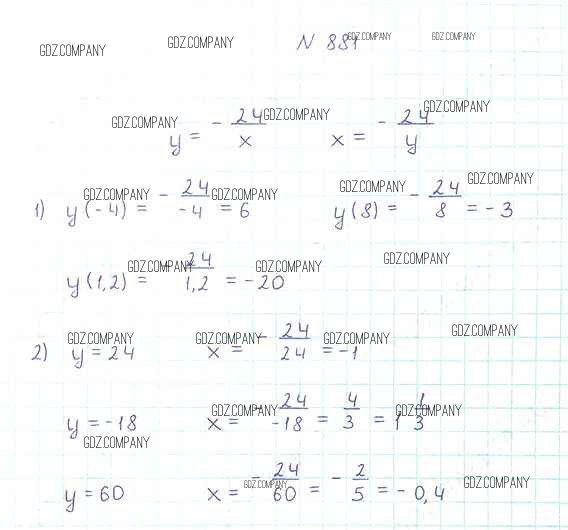 N 881
GDZ.COMPANY GDZ.COMPANY GDZ.COMPANY GDZ.COMPANY
GDZ.COMPANY GDZ.COMPANY GDZ.COMPANY
y = - 24/x x = - 24/y
GDZ.COMPANY GDZ.COMPANY GDZ.COMPANY GDZ.COMPANY
1) y(-4) = - 24/-4 = 6 y(8) = - 24/8 = -3
GDZ.COMPANY GDZ.COMPANY GDZ.COMPANY
y(1,2) = 24/1,2 = -20
GDZ.COMPANY GDZ.COMPANY GDZ.COMPANY GDZ.COMPANY
2) y = 24 x = - 24/24 = -1
GDZ.COMPANY GDZ.COMPANY
y = -18 x = - 24/-18 = 4/3 = 1 1/3
GDZ.COMPANY
GDZ.COMPANY GDZ.COMPANY
y = 60 x = - 24/60 = - 2/5 = - 0,4